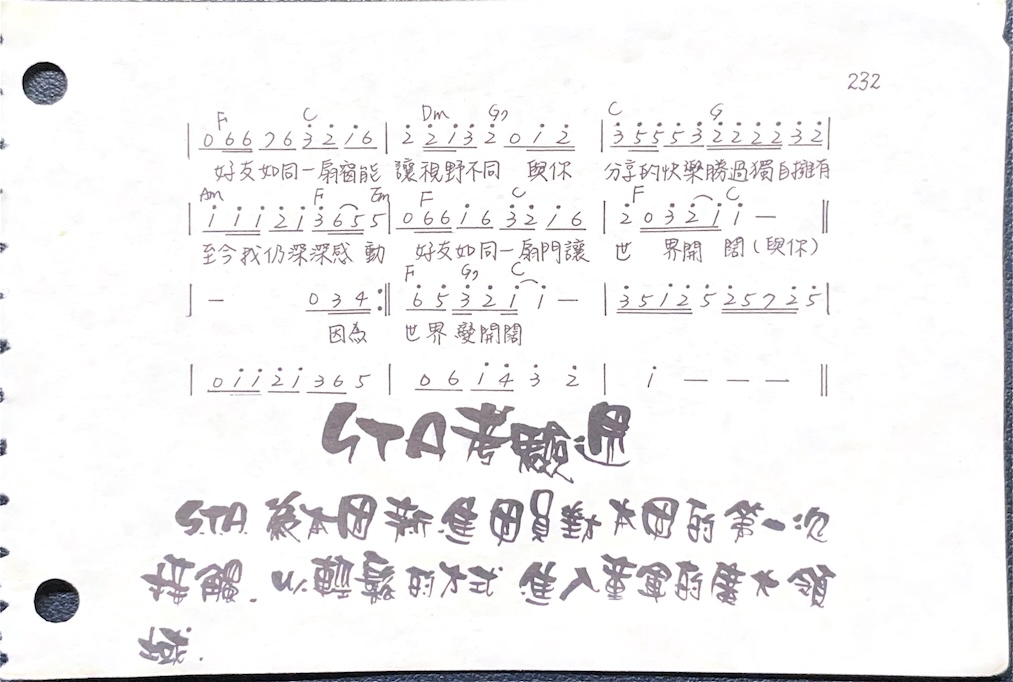 232
F C Dm G7 C G
0 6 6 7 6 3 2 1 6 | 2 2 1 3 2 0 1 2 | 3 5 5 5 3 2 2 2 2 3 2 |
好友如同一扇窗能 讓視野不同 與你 分享的快樂勝過獨自擁有
Am F Em F C F C
1 1 1 2 1 3 6 5 5 | 0 6 6 1 6 3 2 1 6 | 2 0 3 2 1 1 — ‖
至今我仍深深感動 好友如同一扇門讓 世界開闊(與你)
F G7 C
| — 0 3 4 :‖ 6 5 3 2 1 1 — | 3 5 1 2 5 2 5 7 2 5 |
因為 世界變開闊
| 0 1 1 2 1 3 6 5 | 0 6 1 4 3 2 | 1 — — — ‖
STA考驗週
S.T.A. 為本團新進團員對本團的第一次
接觸. 以輕鬆的方式 進入童軍的廣大領
域.